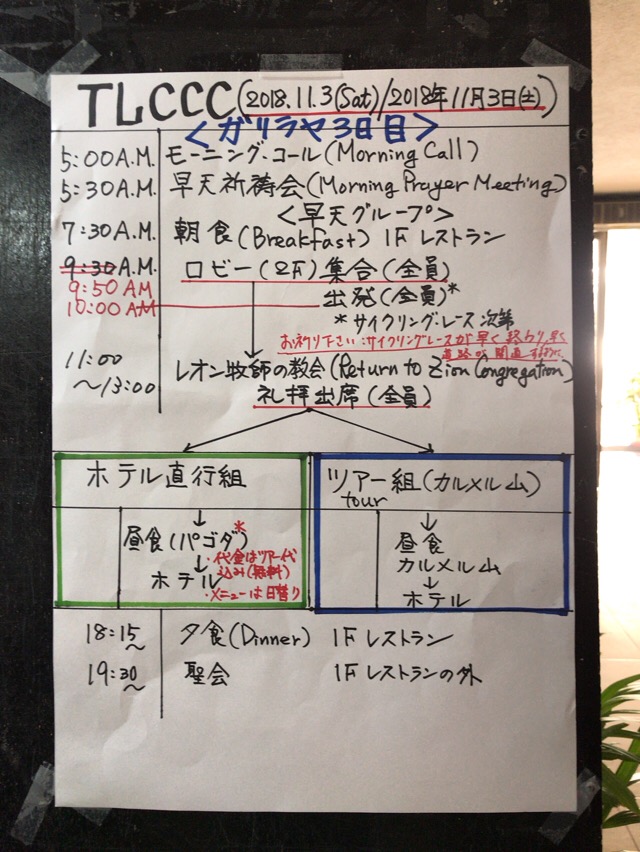 TLCCC (2018.11.3(Sat)/2018年11月3日(土))
<ガリラヤ3日目>
5:00A.M. モーニング・コール(Morning Call)
5:30A.M. 早天祈祷会(Morning Prayer Meeting)
<早天グループ>
7:30A.M. 朝食(Breakfast) 1Fレストラン
9:30A.M. ロビー(2F)集合(全員)
9:50 AM
10:00 AM 出発(全員)*
*サイクリング・レース次第
お祈り下さい:サイクリングレースが早く終わり、早く
道路が開通
11:00 レオン牧師の教会(Return to Zion Congregation)
〜13:00 礼拝出席(全員)
ホテル直行組
↓
昼食(パゴダ)*
・代金はツアー代
込み(無料)
↓
ホテル
・メニューは日替り
ツアー組(カルメル山)
tour
↓
昼食
カルメル山
↓
ホテル
18:15〜 夕食(Dinner) 1Fレストラン
19:30〜 聖会 1Fレストランの外